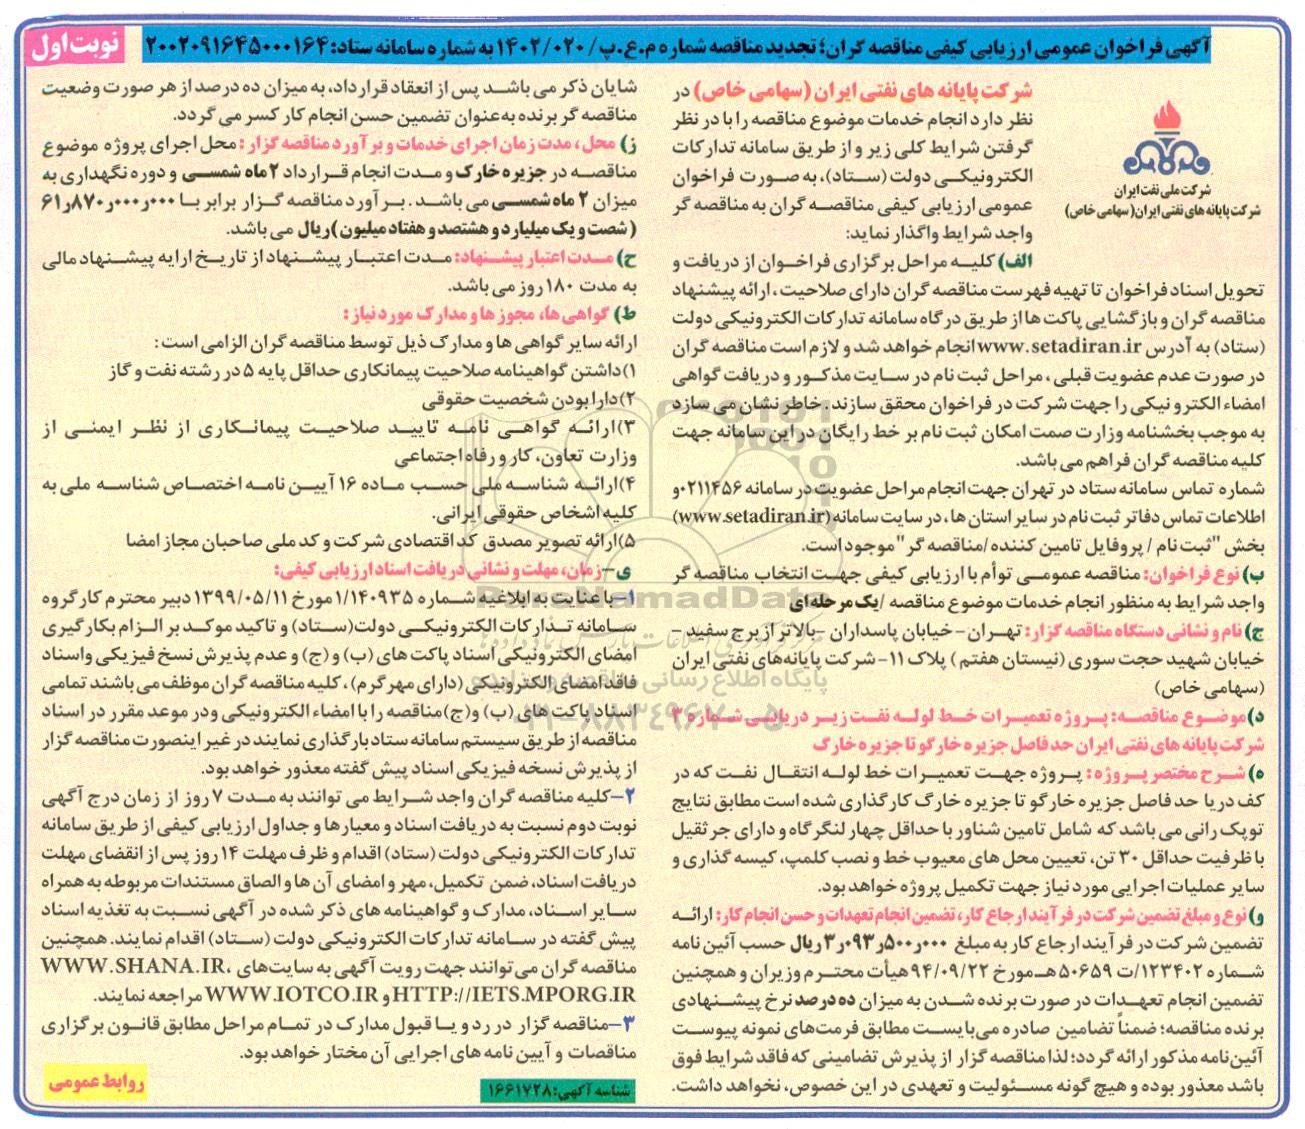 آگهی فراخوان عمومی ارزیابی کیفی مناقصه گران؛ تجدید مناقصه شماره م.ع.پ/۱۴۰۲/۰۲۰ به شماره سامانه ستاد: ۲۰۰۲۰۹۱۶۴۵۰۰۰۱۶۴
نوبت اول
شرکت ملی نفت ایران
شرکت پایانه های نفتی ایران(سهامی خاص)
شرکت پایانه های نفتی ایران (سهامی خاص) در
نظر دارد انجام خدمات موضوع مناقصه را با در نظر
گرفتن شرایط کلی زیر و از طریق سامانه تدارکات
الکترونیکی دولت (ستاد)، به صورت فراخوان
عمومی ارزیابی کیفی مناقصه گران به مناقصه گر
واجد شرایط واگذار نماید:
الف) کلیه مراحل برگزاری فراخوان از دریافت و
تحویل اسناد فراخوان تا تهیه فهرست مناقصه گران دارای صلاحیت، ارائه پیشنهاد
مناقصه گران و بازگشایی پاکت ها از طریق درگاه سامانه تدارکات الکترونیکی دولت
(ستاد) به آدرس www.setadiran.ir انجام خواهد شد و لازم است مناقصه گران
در صورت عدم عضویت قبلی، مراحل ثبت نام در سایت مذکور و دریافت گواهی
امضاء الکترونیکی را جهت شرکت در فراخوان محقق سازند. خاطر نشان می سازد
به موجب بخشنامه وزارت صمت امکان ثبت نام بر خط رایگان در این سامانه جهت
کلیه مناقصه گران فراهم می باشد.
شماره تماس سامانه ستاد در تهران جهت انجام مراحل عضویت در سامانه ۰۲۱۱۴۵۶ و
اطلاعات تماس دفاتر ثبت نام در سایر استان ها، در سایت سامانه (www.setadiran.ir)
بخش "ثبت نام / پروفایل تامین کننده /مناقصه گر" موجود است.
ب) نوع فراخوان: مناقصه عمومی توأم با ارزیابی کیفی جهت انتخاب مناقصه گر
واجد شرایط به منظور انجام خدمات موضوع مناقصه /یک مرحله ای
ج) نام و نشانی دستگاه مناقصه گزار: تهران - خیابان پاسداران -بالاتر از برج سفید -
خیابان شهید حجت سوری (نیستان هفتم ) پلاک ۱۱- شرکت پایانه‌های نفتی ایران
(سهامی خاص)
د)موضوع مناقصه: پروژه تعمیرات خط لوله نفت زیر دریایی شماره ۳
شرکت پایانه های نفتی ایران حد فاصل جزیره خارگو تا جزیره خارک
ه) شرح مختصر پروژه: پروژه جهت تعمیرات خط لوله انتقال نفت که در
کف دریا حد فاصل جزیره خارگو تا جزیره خارگ کارگذاری شده است مطابق نتایج
توپک رانی می باشد که شامل تامین شناور با حداقل چهار لنگرگاه و دارای جرثقیل
با ظرفیت حداقل ۳۰ تن، تعیین محل های معیوب خط و نصب کلمپ، کیسه گذاری و
سایر عملیات اجرایی مورد نیاز جهت تکمیل پروژه خواهد بود.
و) نوع و مبلغ تضمین شرکت در فرآیند ارجاع کار، تضمین انجام تعهدات و حسن انجام کار: ارائه
تضمین شرکت در فرآیند ارجاع کار به مبلغ ۳٫۰۹۳٫۵۰۰٫۰۰۰ ریال حسب آئین نامه
شماره ۱۲۳۴۰۲/ت ۵۰۶۵۹ هـ مورخ ۹۴/۰۹/۲۲ هیأت محترم وزیران و همچنین
تضمین انجام تعهدات در صورت برنده شدن به میزان ده درصد نرخ پیشنهادی
برنده مناقصه؛ ضمناً تضامین صادره می‌بایست مطابق فرمت‌های نمونه پیوست
آئین‌نامه مذکور ارائه گردد؛ لذا مناقصه گزار از پذیرش تضامینی که فاقد شرایط فوق
باشد معذور بوده و هیچ گونه مسئولیت و تعهدی در این خصوص، نخواهد داشت.
شایان ذکر می باشد پس از انعقاد قرارداد، به میزان ده درصد از هر صورت وضعیت
مناقصه گر برنده به عنوان تضمین حسن انجام کار کسر می گردد.
ز) محل، مدت زمان اجرای خدمات و برآورد مناقصه گزار: محل اجرای پروژه موضوع
مناقصه در جزیره خارک و مدت انجام قرارداد ۲ ماه شمسی و دوره نگهداری به
میزان ۲ ماه شمسی می باشد. برآورد مناقصه گزار برابر با ۶۱٫۸۷۰٫۰۰۰٫۰۰۰
(شصت و یک میلیارد و هشتصد و هفتاد میلیون )ریال می باشد.
ح) مدت اعتبار پیشنهاد: مدت اعتبار پیشنهاد از تاریخ ارایه پیشنهاد مالی
به مدت ۱۸۰ روز می باشد.
ط) گواهی ها، مجوزها و مدارک مورد نیاز:
ارائه سایر گواهی ها و مدارک ذیل توسط مناقصه گران الزامی است:
۱)داشتن گواهینامه صلاحیت پیمانکاری حداقل پایه ۵ در رشته نفت و گاز
۲)دارا بودن شخصیت حقوقی
۳)ارائه گواهی نامه تایید صلاحیت پیمانکاری از نظر ایمنی از
وزارت تعاون، کار و رفاه اجتماعی
۴)ارائه شناسه ملی حسب ماده ۱۶ آیین نامه اختصاص شناسه ملی به
کلیه اشخاص حقوقی ایرانی.
۵)ارائه تصویر مصدق کد اقتصادی شرکت و کد ملی صاحبان مجاز امضا
ی-زمان، مهلت و نشانی دریافت اسناد ارزیابی کیفی:
۱-با عنایت به ابلاغیه شماره ۱/۱۴۰۹۳۵ مورخ ۱۳۹۹/۰۵/۱۱ دبیر محترم کارگروه
سامانه تدارکات الکترونیکی دولت(ستاد) و تاکید موکد بر الزام بکارگیری
امضای الکترونیکی اسناد پاکت های (ب) و (ج) و عدم پذیرش نسخ فیزیکی واسناد
فاقد امضای الکترونیکی (دارای مهر گرم)، کلیه مناقصه گران موظف می باشند تمامی
اسناد پاکت های (ب) و(ج)مناقصه را با امضاء الکترونیکی ودر موعد مقرر در اسناد
مناقصه از طریق سیستم سامانه ستاد بارگذاری نمایند در غیر اینصورت مناقصه گزار
از پذیرش نسخه فیزیکی اسناد پیش گفته معذور خواهد بود.
۲-کلیه مناقصه گران واجد شرایط می توانند به مدت ۷ روز از زمان درج آگهی
نوبت دوم نسبت به دریافت اسناد و معیارها و جداول ارزیابی کیفی از طریق سامانه
تدارکات الکترونیکی دولت (ستاد) اقدام و ظرف مهلت ۱۴ روز پس از انقضای مهلت
دریافت اسناد، ضمن تکمیل، مهر و امضای آن ها و الصاق مستندات مربوطه به همراه
سایر اسناد، مدارک و گواهینامه های ذکر شده در آگهی نسبت به تغذیه اسناد
پیش گفته در سامانه تدارکات الکترونیکی دولت (ستاد) اقدام نمایند. همچنین
مناقصه گران می‌توانند جهت رویت آگهی به سایت‌های WWW.SHANA.IR،
HTTP://IETS.MPORG.IR و WWW.IOTCO.IR مراجعه نمایند.
۳-مناقصه گزار در رد و یا قبول مدارک در تمام مراحل مطابق قانون برگزاری
مناقصات و آیین نامه های اجرایی آن مختار خواهد بود.
شناسه آگهی: ۱۶۶۱۷۲۸
روابط عمومی
ParsNamadData
پایگاه اطلاع رسانی مناقصه و مزایده
۰۲۱-۸۸۳۴۹۶۷۰-۵